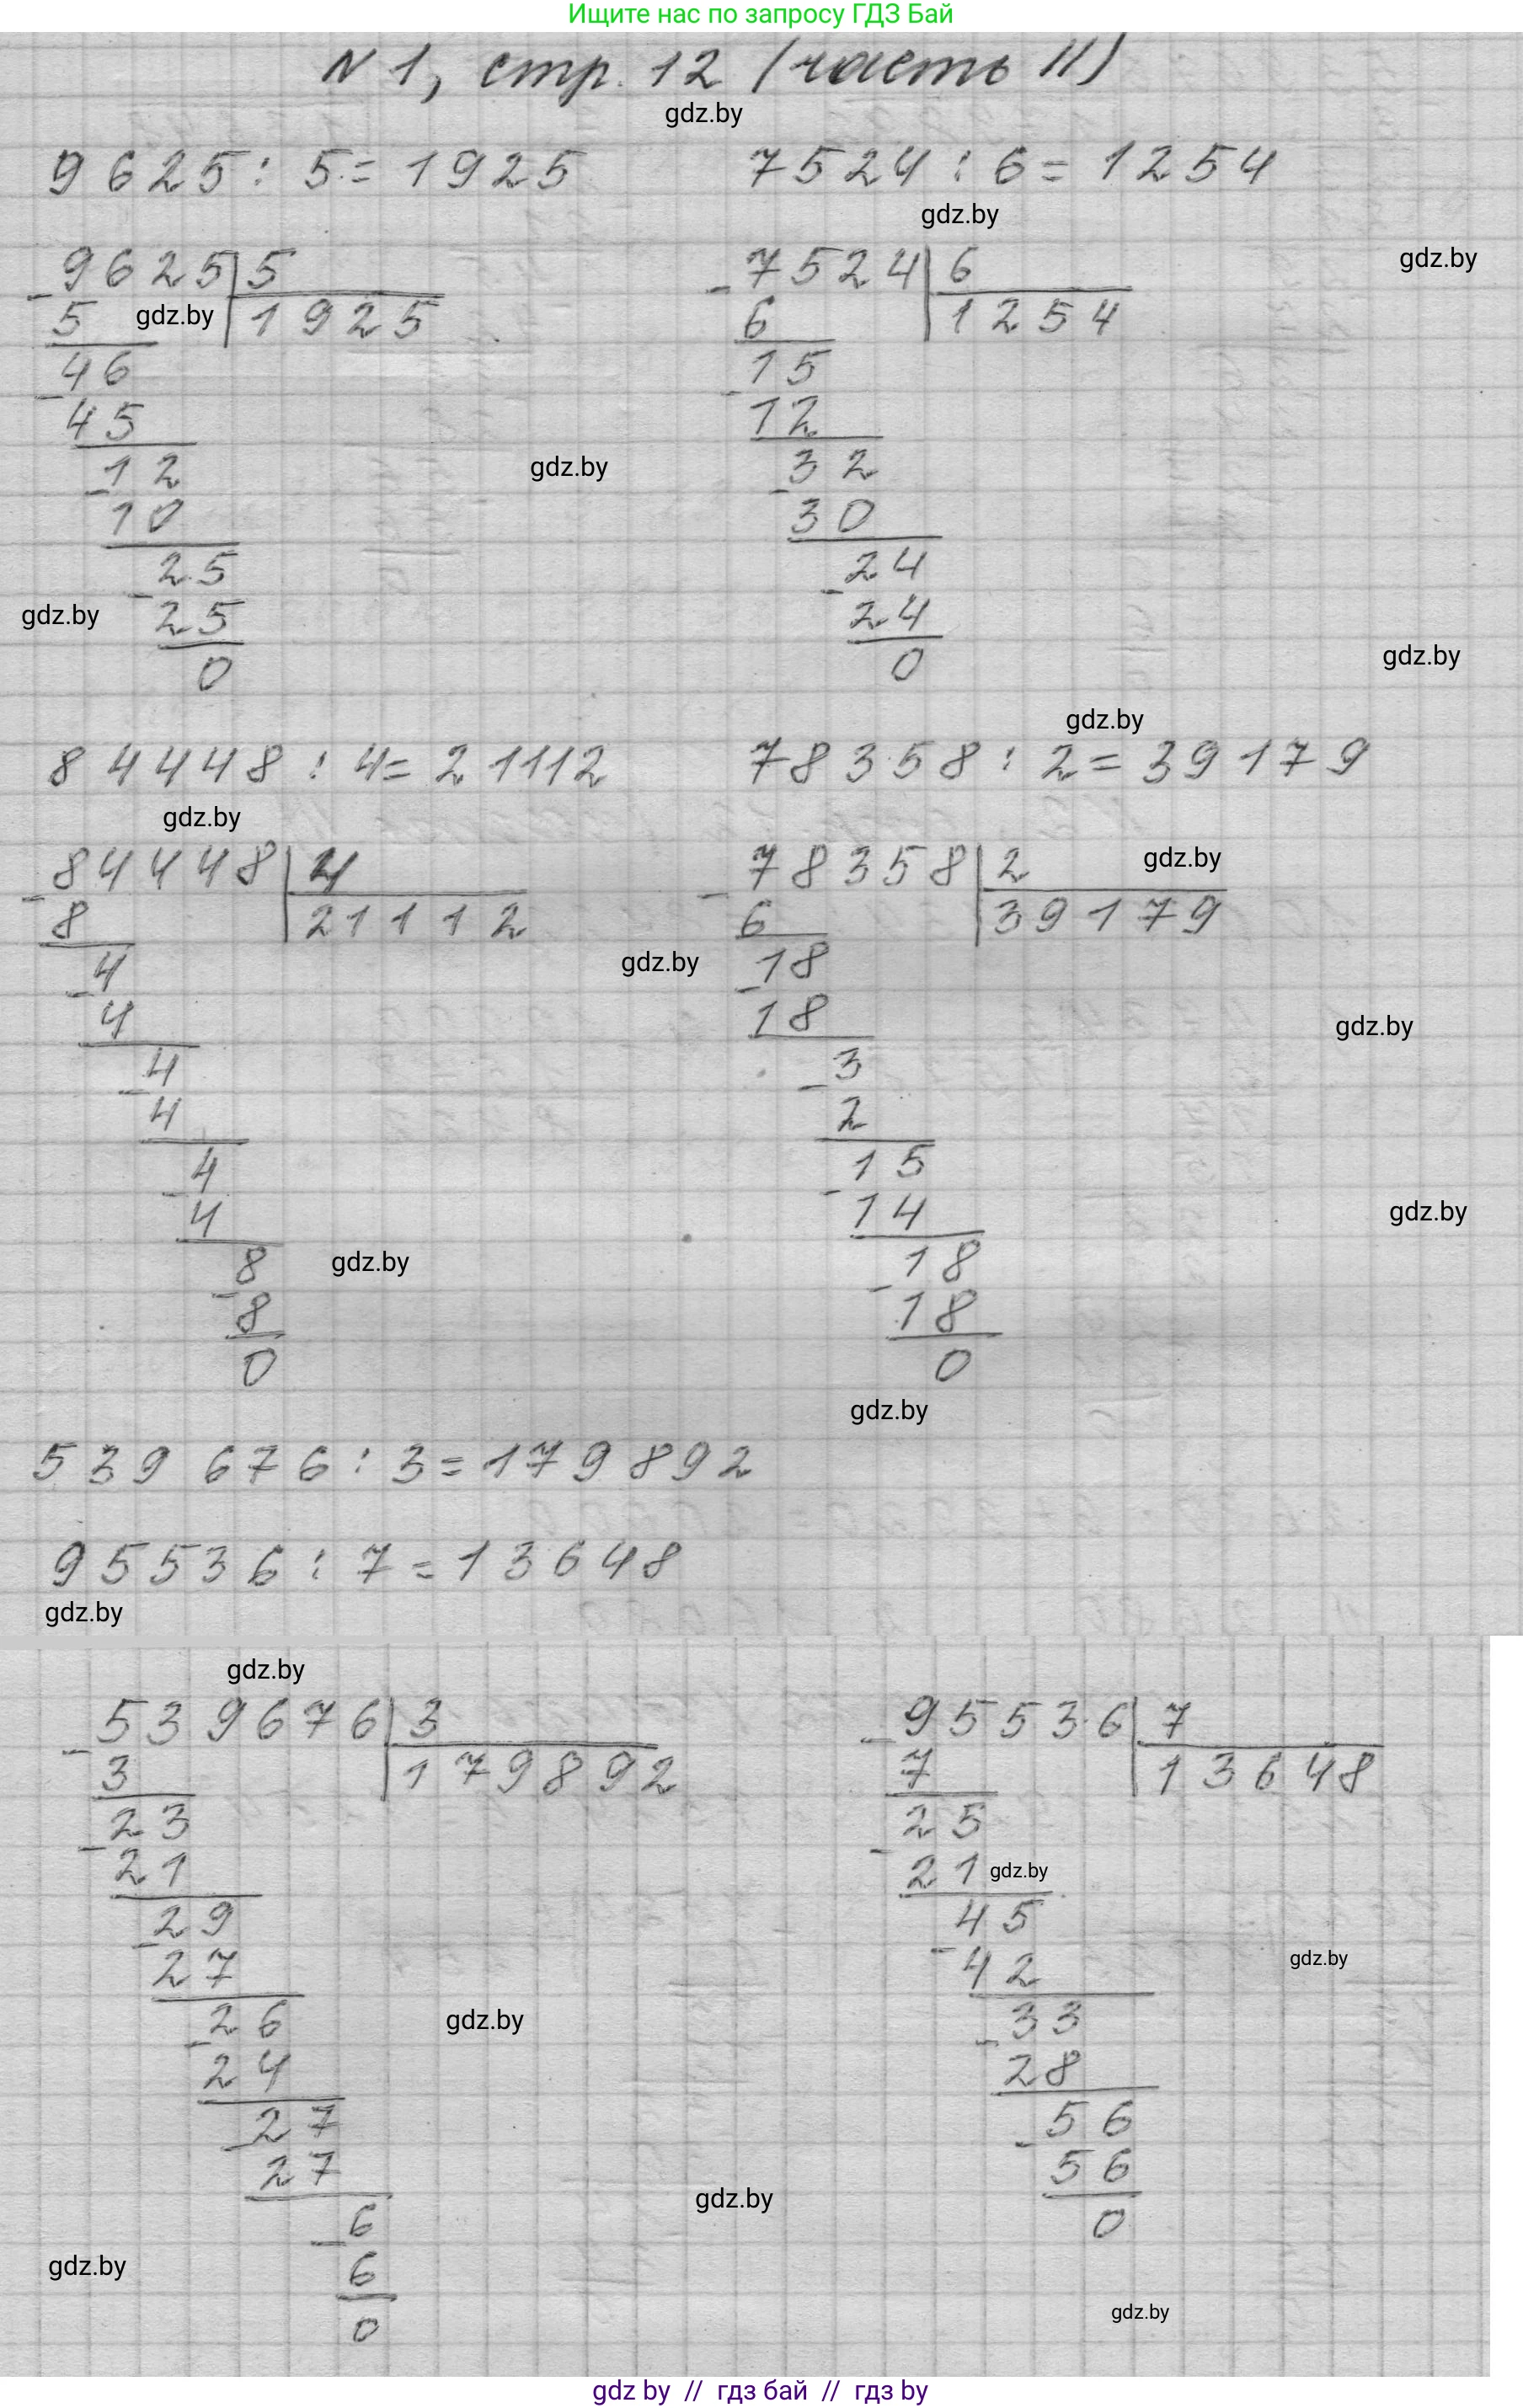 Ищите нас по запросу ГДЗ Бай
N 1, стр. 12 (часть II)
gdz.by
9625 : 5 = 1925 7524 : 6 = 1254
gdz.by
9625 5 7524 6 gdz.by
- 5 gdz.by 1925 - 6 1254
46 15
- 45 - 12
12 gdz.by 32
- 10 - 30
25 24
gdz.by - 25 - 24
0 0 gdz.by
gdz.by
84448 : 4 = 21112 78358 : 2 = 39179
gdz.by
84448 4 78358 2 gdz.by
- 8 21112 - 6 39179
4 gdz.by 18
- 4 - 18 gdz.by
4 3
- 4 - 2
4 15
- 4 - 14 gdz.by
8 gdz.by 18
- 8 - 18
0 0
gdz.by
539 676 : 3 = 179 892
95536 : 7 = 13648
gdz.by
gdz.by
539676 3 95536 7
- 3 179892 - 7 13648
23 25
- 21 - 21 gdz.by
29 45
- 27 - 42 gdz.by
26 gdz.by 33
- 24 - 28
27 56
- 27 - 56
gdz.by
6 0
gdz.by - 6
gdz.by
0
gdz by // гдз бай // гдз by